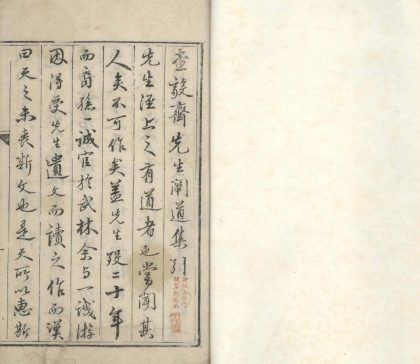 查毅齋先生闡道集引
先生涇上之有道者也嘗聞其
人矣不可作矣蓋先生歿二十年
而裔孫一誠官於武林余与一誠游
因得受先生遺文而讀之作而漢
曰天之未喪斯文也是天所以惠斯